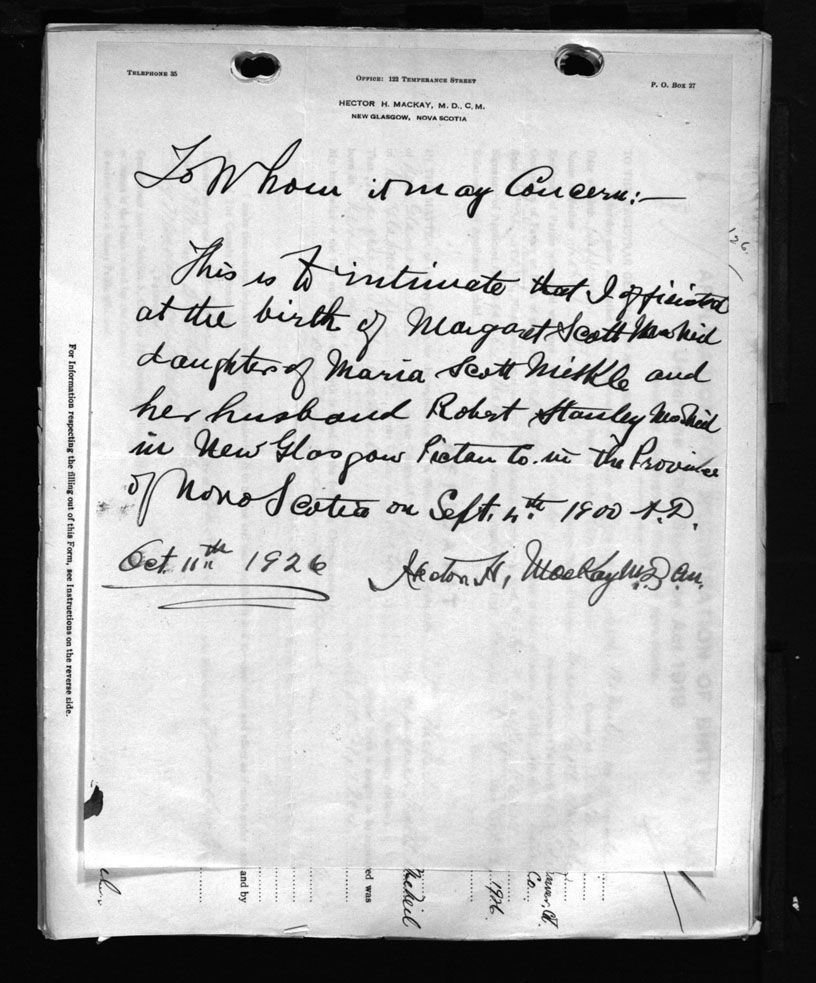 TELEPHONE 35
OFFICE: 122 TEMPERANCE STREET
P. O. BOX 27
HECTOR H. MACKAY, M. D., C. M.
NEW GLASGOW, NOVA SCOTIA
To Whom it may Concern:—
126.
This is to intimate that I officiated
at the birth of Margaret Scott
daughter of Maria Scott Meikle and
her husband Robert Stanley
in New Glasgow Pictou Co. in the Province
of Nova Scotia on Sept. 4th 1900 A.D.
Oct. 11th 1926
Hector H. MacKay M.D. C.M.
For Information respecting the filling out of this Form, see Instructions on the reverse side.
and by
red was
McNeil
1926.
Co.